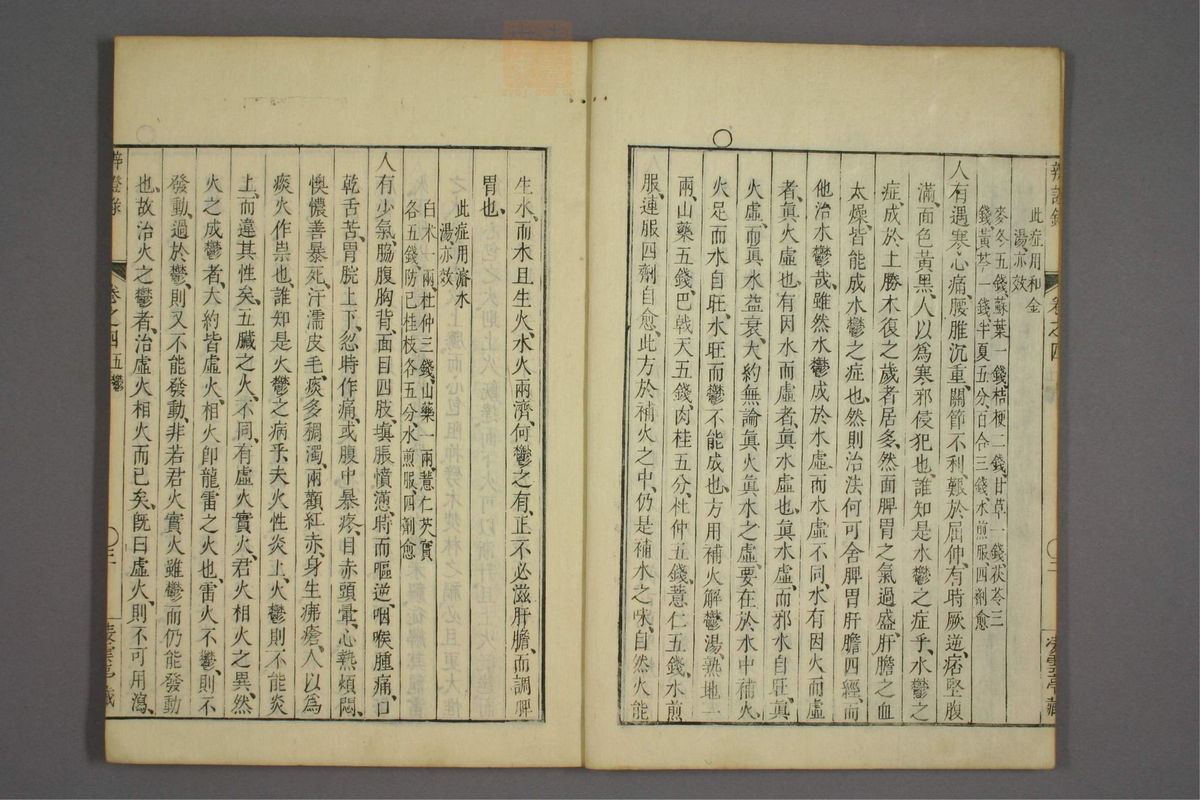 此症用和金
湯亦效
麥冬五錢蘇葉一錢桔梗二錢甘草一錢茯苓三
錢黃芩一錢半夏五分百合三錢水煎服四劑愈
人有遇寒心痛腰脽沉重關節不利艱於屈伸有時厥逆痞堅腹
滿面色黃黑人以爲寒邪侵犯也誰知是水鬱之症乎水鬱之
症成於土勝木復之歲者居多然而脾胃之氣過盛肝膽之血
太燥皆能成水鬱之症也然則治法何可舍脾胃肝膽四經而
他治水鬱哉雖然水鬱成於水虛而水虛不同水有因火而虛
者眞火虛也有因水而虛者眞水虛也眞水虛而邪水自旺眞
火虛而眞水益衰大約無論眞火眞水之虛要在於水中補火
火足而水自旺水旺而鬱不能成也方用補火解鬱湯熟地一
兩山藥五錢巴戟天五錢肉桂五分杜仲五錢薏仁五錢水煎
服連服四劑自愈此方於補火之中仍是補水之味自然火能
生水而木且生火水火兩濟何鬱之有正不必滋肝膽而調脾
胃也
此症用濬水
湯亦效
白朮一兩杜仲三錢山藥一兩薏仁芡實
各五錢防己桂枝各五分水煎服四劑愈
人有少氣脇腹胸背面目四肢塡脹憤懣時而嘔逆咽喉腫痛口
乾舌苦胃脘上下忽時作痛或腹中暴疼目赤頭暈心熱煩悶
懊憹善暴死汗濡皮毛痰多稠濁兩顴紅赤身生疿瘡人以爲
痰火作祟也誰知是火鬱之病乎夫火性炎上火鬱則不能炎
上而違其性矣五臟之火不同有虛火實火君火相火之異然
火之成鬱者大約皆虛火相火卽龍雷之火也雷火不鬱則不
發動過於鬱則又不能發動非若君火實火雖鬱而仍能發動
也故治火之鬱者治虛火相火而已矣旣曰虛火則不可用瀉
卷之四五鬱